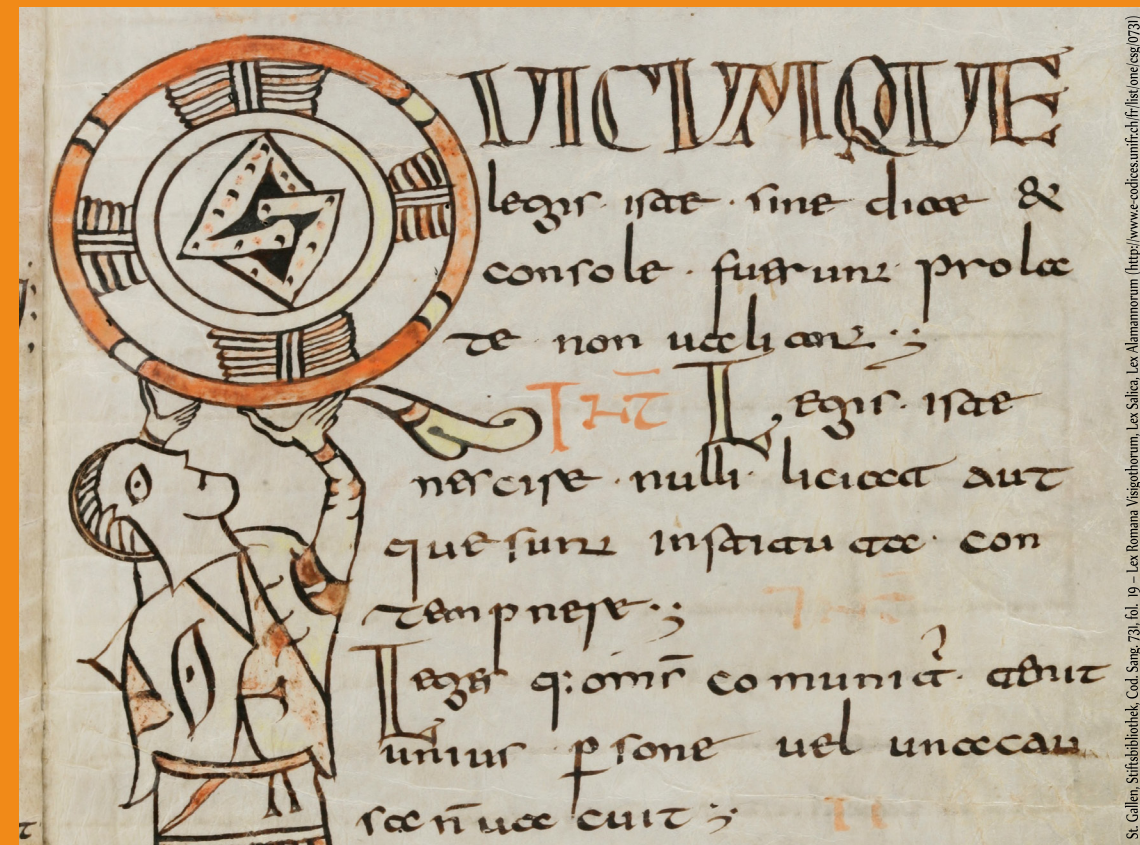 QUICUMQUE
legis iste sine die &
console fuerunt prola
te non ualiant
INT Legis iste
nescire nulli liciat aut
que sunt instituta con
tempnere
Leges q: omis comunit
unius psone uel una cau
sa
St. Gallen, Stiftsbibliothek, Cod. Sang. 731, fol. 19 – Lex Romana Visigothorum, Lex Salica, Lex Alamannorum (http://www.e-codices.unifr.ch/fr/list/one/csg/0731)